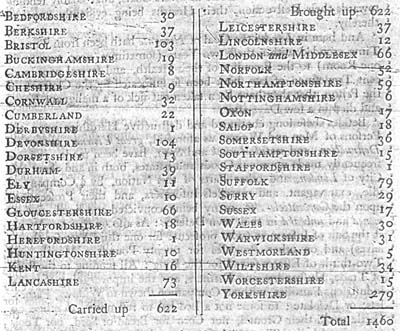 BEDFORDSHIRE 30
BERKSHIRE 37
BRISTOL 103
BUCKINGHAMSHIRE 19
CAMBRIDGESHIRE 8
CHESHIRE 9
CORNWALL 32
CUMBERLAND 22
DERBYSHIRE 1
DEVONSHIRE 104
DORSETSHIRE 13
DURHAM 39
ELY 11
ESSEX 10
GLOUCESTERSHIRE 66
HARTFORDSHIRE 18
HEREFORDSHIRE 1
HUNTINGTONSHIRE 10
KENT 16
LANCASHIRE 73
Carried up 622
Brought up 622
LEICESTERSHIRE 37
LINCOLNSHIRE 12
LONDON and MIDDLESEX 66
NORFOLK 52
NORTHAMPTONSHIRE 59
NOTTINGHAMSHIRE 6
OXON 17
SALOP 18
SOMERSETSHIRE 36
SOUTHAMPTONSHIRE 15
STAFFORDSHIRE 1
SUFFOLK 79
SURRY 29
SUSSEX 17
WALES 30
WARWICKSHIRE 31
WESTMORLAND 5
WILTSHIRE 34
WORCESTERSHIRE 15
YORKSHIRE 279
Total 1460